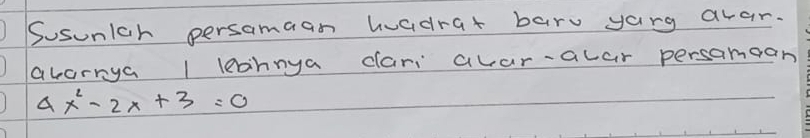 Susunlah persamaan kuadrat baru yang akar-
akarnya 1 lebihnya dari akar-akar persamaan
4x² - 2x + 3 = 0